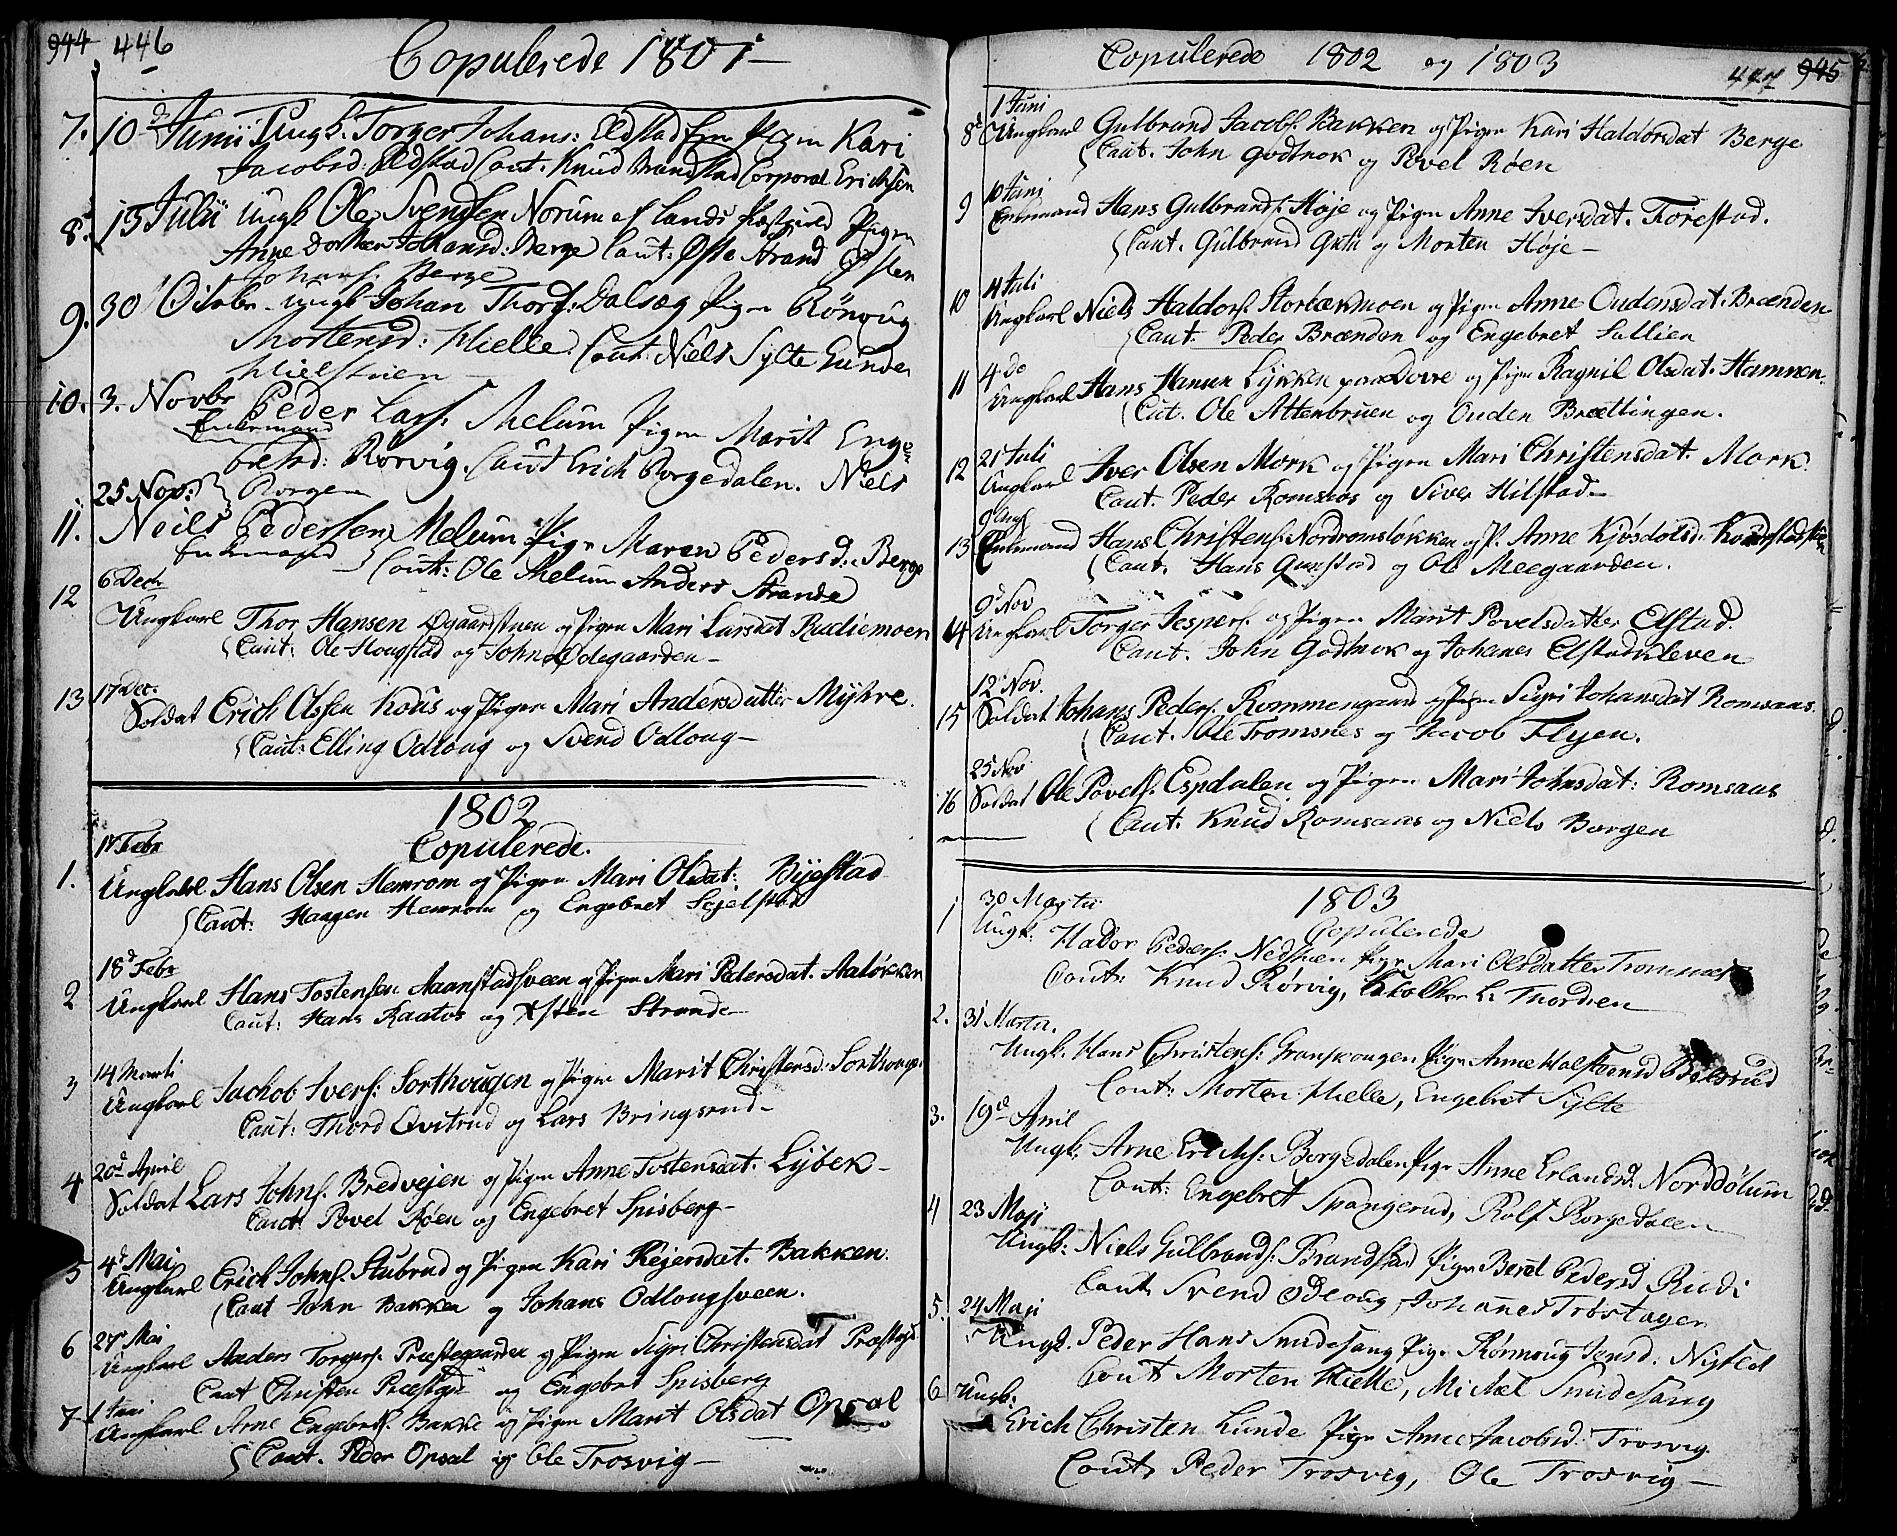 944 446
Copulerede 1801
7. 10d Junii Ungk. Torger Johans: Eldstad Pigen Kari
Jacobsd: Elstad Caut. Knud Brandstad Corporal Erichsen
8. 15 Julii Ungk Ole Svendsen Norum af Lands Pigen
Anne Johansd: Berge Caut: Øste Strand Østen
Johans. Berge
9. 30 Octobr. Ungk Johan Thors: Dalsæg Pigen Rönoug
Mortensd: Hielle. Caut: Niels Sylte Gunder
Hielstuen
10. 3. Novbr Peder Lars. Melum Pigen Marit Enge-
Enkemand
bretsd: Rörvig. Caut Erich Borgedalen. Niels
Borgen
25 Nov:
11. Neils Pedersen Melum Pign Maren Pedersd. Berge
Enkemand Caut: Ole Melum Anders Strande
6 Decb
12 Ungkarl Thor Hansen Øgaardstuen og Pigen Mari Larsdat Rudiemoen
Caut: Ole Hougstad og John Ødegaarden
17 Dec.
13 Soldat Erich Olssen Koùs og Pigen Mari Andersdatter Myhre.
Caut: Elling Odloug og Svend Odloug
1802
Copulerede.
17 Febr
1. Ungkarl Hans Olsen Hemrom og Pigen Mari Olsdat: Byestad
Caut: Haagen Hemrom og Engebret
18d Febr
2 Ungkarl Hans Tostensen Aaanstadsveen og Pigen Mari Pedersdat. Aaløkken
Caut: Hans Raaaos og Østen Strande
14 Marti
3 Ungkarl Jachob Ivers: Sorthougen og Pigen Marit Christensd: Sorthoug.
Caut: Thord Qvitrud og Lars Bringsrud
20d April
4 Soldat Lars Johns. Bredvejen og Pigen Anne Tostensdat. Lybek
Caut. Povel Røen og Engebret Spisberg
4d Mai
5 Ungkarl Erich Johns. Stubrud og Pigen Kari Rejersdat. Bakken
Caut John Bakken og Johans Odlougsveen.
27 Mai
6 Ungkarl Anders Torgers. Præstegaarden og Pigen Sigri Christensdat Præstegd.
Caut Christen Præstgd og Engebret Spisberg
1 Juni
7 Ungkarl Arne Engebrets. Bakke og Pigen Marit Olsdat Opsal
Caut. Peder Opsal og Ole Trosvig
Copulerede 1802 og 1803
447 945
1 Juni
8 Ungkarl Gulbrand Jacobs. Bakken og Pigen Kari Haldorsdat Berge
Caut. John Godtnok og Povel Røen
10 Juni
9 Enkemand Hans Gulbrands. Høje og Pigen Anne Iversdat. Forestad.
Caut. Gulbrand og Morten Høje
4 Juli
10 Ungkarl Niels Haldors. Storbækmoen og Pigen Anne Oudensdat. Brænden
Caut. Peder Brænden og Engebret Sullien
4 do
11 Ungkarl Hans Hansen Lykken paa Dovre og Pigen Ragnil Olsdat. Hamren.
Caut. Ole Attenbruen og Ouden Brættingen.
21 Juli
12 Ungkarl Iver Olsen Mork og Pigen Mari Christensdat. Mork.
Caut. Peder Romsaas og Siver Hilstad
9 Aug
13 Enkemand Hans Christens. Nordromsløkken og P. Anne Kjösdolsd.
Caut. Hans og Ole Meegaarden.
9 Nov
14 Ungkarl Torger Jespers. og Pigen Marit Povelsdatter Elstad.
Caut. John Godtnok og Johanes Elstadkleven
12 Nov.
15 Soldat Johans Peders. Rommengaard og Pigen Sigri Johansdat Romsaas.
Caut. Ole Tromsnes og Jacob Flyen.
25 Nov
16 Soldat Ole Povels. Espdalen og Pigen Mari Johnsdat: Romsaas
Caut. Knud Romsaas og Niels Borgen
1803
Copulerede
1 30 Martii
Ungk: Hador Peders: Nedstuen Pign Mari Olsdatter Tromsnes
Caut: Knud Rörvig, L: Thordsen
2. 31 Martii.
Ungk. Hans Christens: Granskougen Pign Anne
Caut: Morten Hielle, Engebret Sylte
3. 19d April
Ungk: Arne Erichs: Borgedalen Pign Anne Erlandsd. Norddölum
Caut: Engebret Spangrud, Rolf Borgedalen
4 23 Maji
Ungk: Niels Gulbrands: Brandstad Pign Beret Pedersd Rudi
Caut. Svend Odloug, Johannes Trostagen
5. 24 Maji
Ungk. Peder Hans Smidesang Pign Rönnoug Jensd. Nysted
Caut Morten Hielle, Mickel Smidesang
6 Ungk:
Erich Christen Lunde Pign Anne Jacobsd: Trosvig
Caut. Peder Trosvig, Ole Trosvig